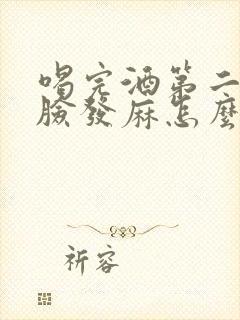 喝完酒第二
臉發麻怎麼
祈容